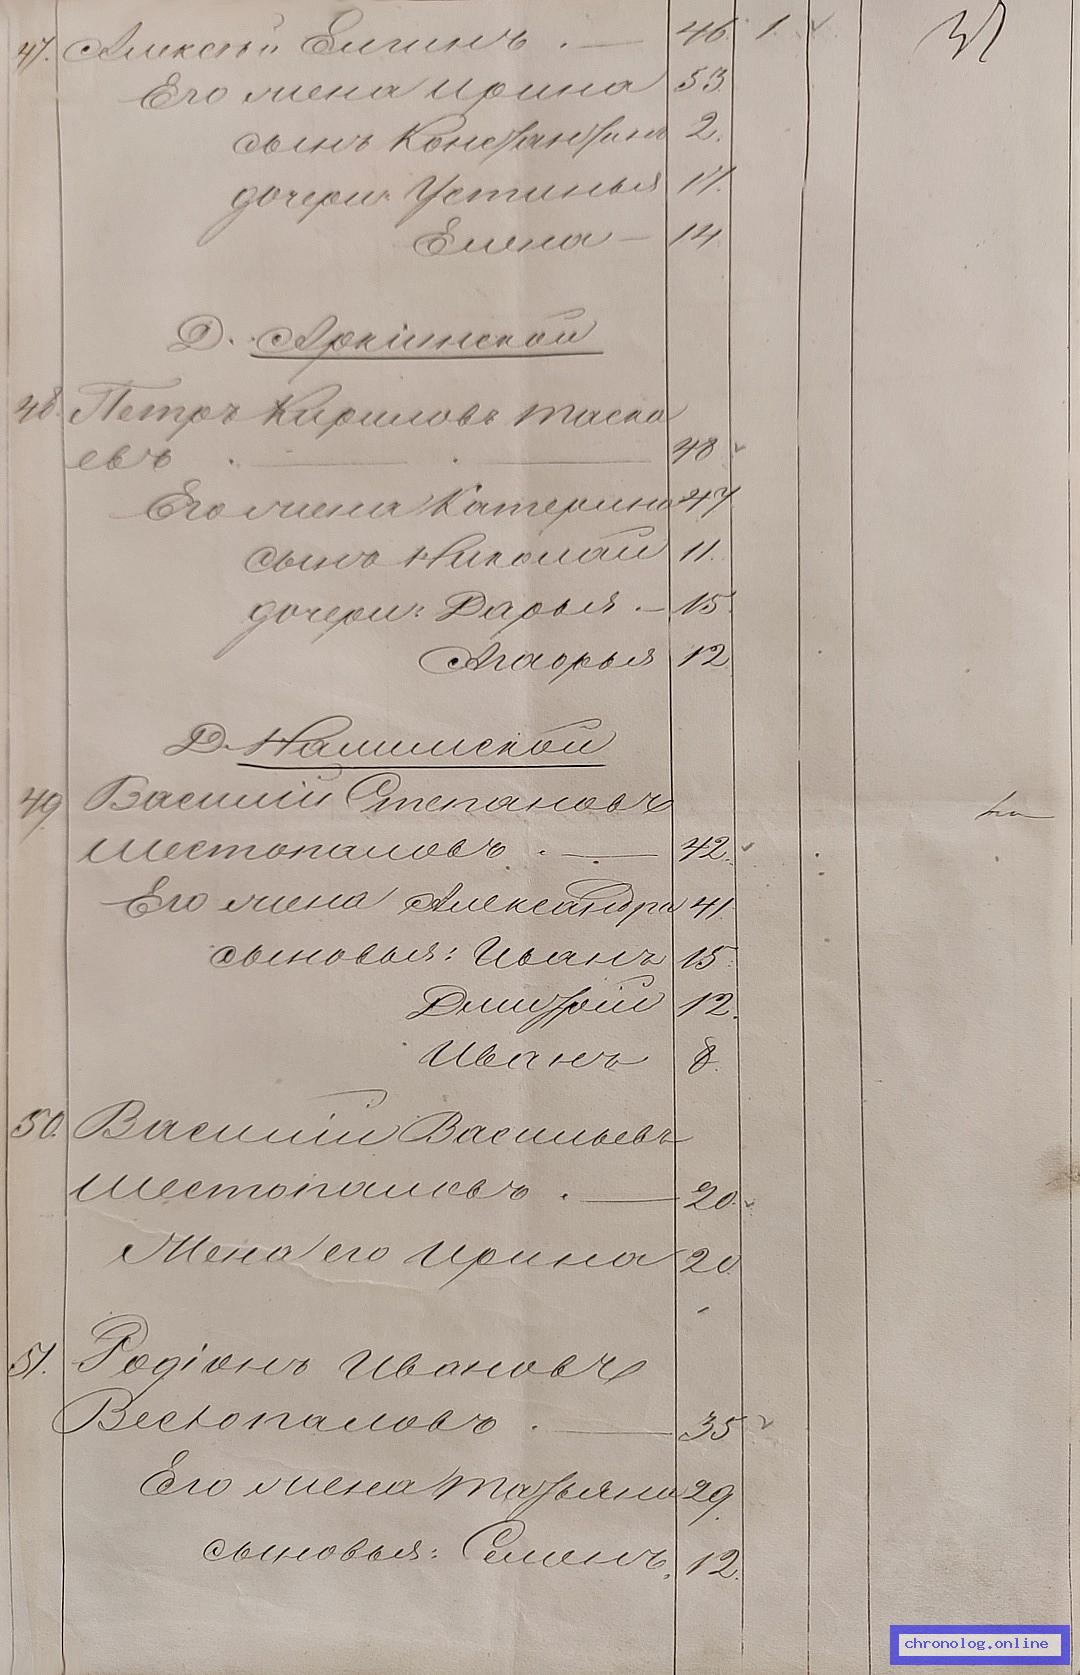 47. Алексѣй Елгинъ . — 46. 1.
Его жена Ирина 53.
сынъ Константинъ 2.
дочери: Устинья 17.
Елена — 14
Д. Аркіинской
48. Петръ Кириловъ Таска
евъ . — . — 48
Его жена Катерина 47
сынъ Николай 11.
дочери: Дарья . — 15.
Агафья 12
Д. Налимской
49. Василій Степановъ
Шестопаловъ . — 42.
Его жена Александра 41.
сыновья: Иванъ 15.
Дмитрій 12.
Иванъ 8.
50. Василій Васильевъ
Шестопаловъ . — 20.
Жена его Ирина 20.
51. Родіонъ Ивановъ
Вестопаловъ . — 35
Его жена Татьяна 29.
сыновья: Семенъ. 12.
chronolog.online